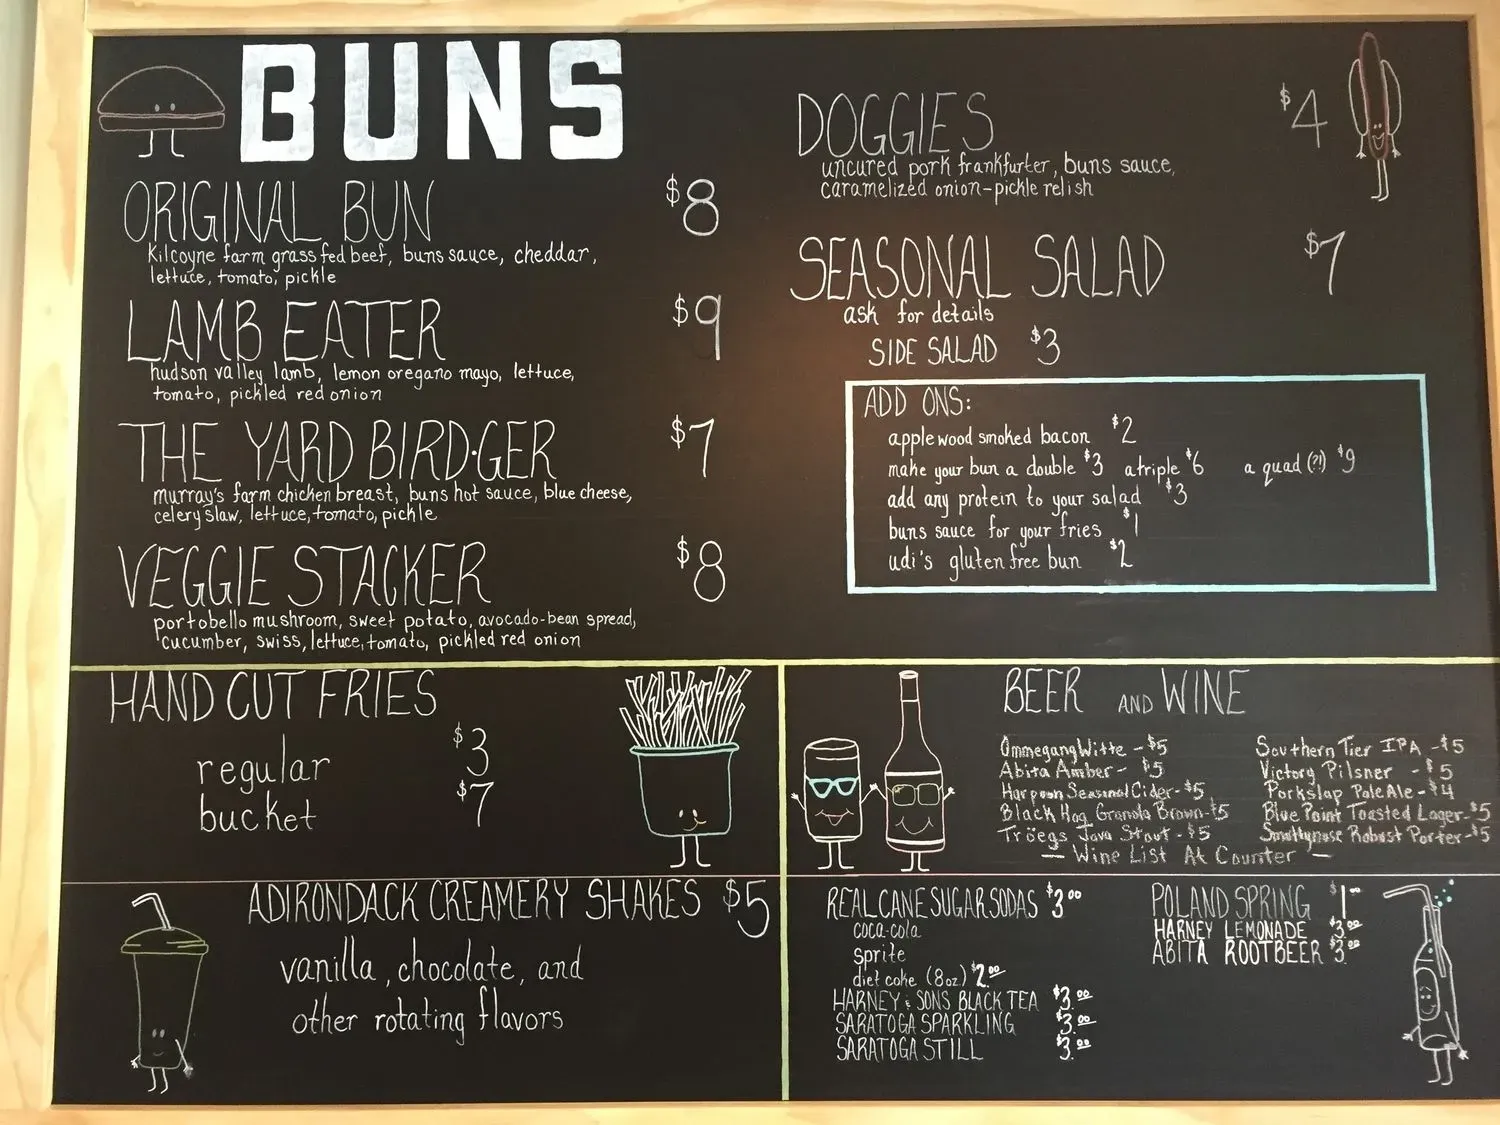 BUNS
ORIGINAL BUN $8
Kilcoyne farm grass fed beef, buns sauce, cheddar,
lettuce, tomato, pickle
LAMB EATER $9
hudson valley lamb, lemon oregano mayo, lettuce,
tomato, pickled red onion
THE YARD BIRD·GER $7
murray's farm chicken breast, buns hot sauce, blue cheese,
celery slaw, lettuce, tomato, pickle
VEGGIE STACKER $8
portobello mushroom, sweet potato, avocado-bean spread,
cucumber, swiss, lettuce, tomato, pickled red onion
DOGGIES $4
uncured pork frankfurter, buns sauce,
caramelized onion-pickle relish
SEASONAL SALAD $7
ask for details
SIDE SALAD $3
ADD ONS:
applewood smoked bacon $2
make your bun a double $3 a triple $6 a quad (?!) $9
add any protein to your salad $3
buns sauce for your fries $1
udi's gluten free bun $2
HAND CUT FRIES
regular $3
bucket $7
BEER AND WINE
Ommegang Witte - $5
Abita Amber - $5
Harpoon Seasonal Cider - $5
Black Hog Granola Brown - $5
Tröegs Java Stout - $5
Southern Tier IPA - $5
Victory Pilsner - $5
Porkslap Pale Ale - $4
Blue Point Toasted Lager - $5
Smuttynose Robust Porter - $5
— Wine List At Counter —
ADIRONDACK CREAMERY SHAKES $5
vanilla, chocolate, and
other rotating flavors
REAL CANE SUGAR SODAS $3.00
coca-cola
sprite
diet coke (8oz) $2.00
HARNEY & SONS BLACK TEA $3.00
SARATOGA SPARKLING $3.00
SARATOGA STILL $3.00
POLAND SPRING $1.00
HARNEY LEMONADE $3.00
ABITA ROOTBEER $3.00